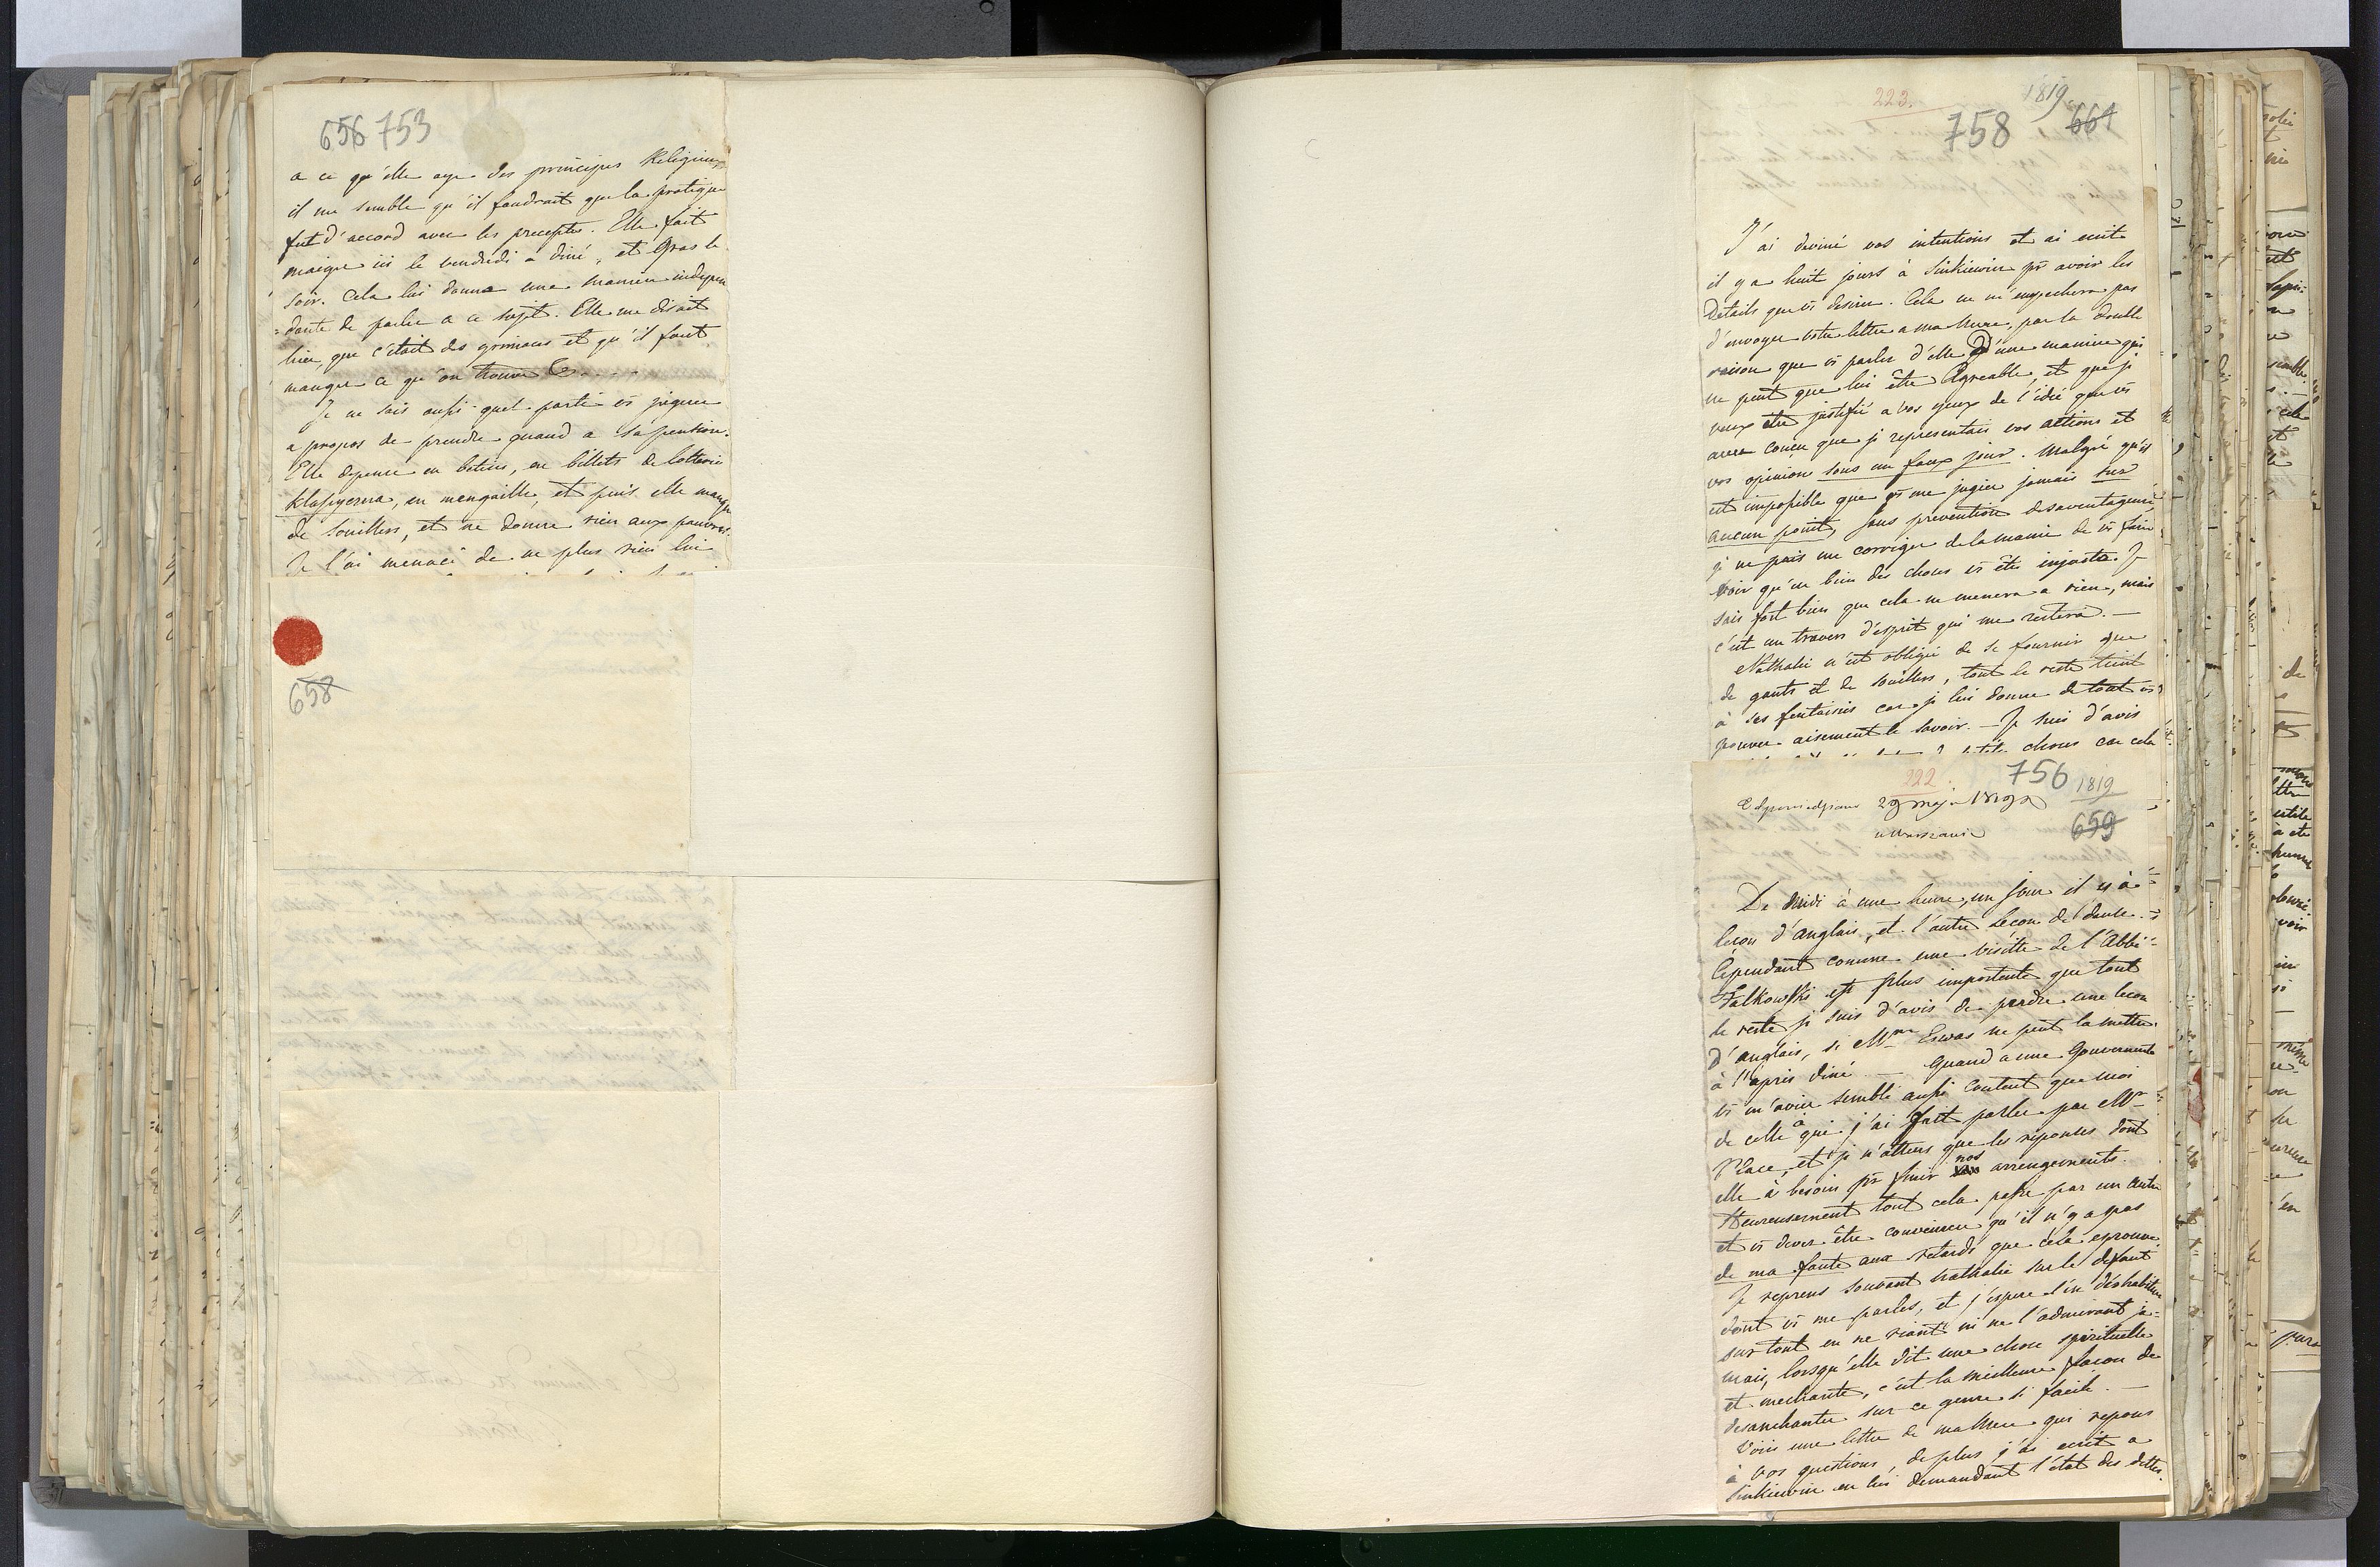 656 753
a ce qu'elle aye des principes Religieux
il me semble qu'il faudrait que la pratique
fut d'accord avec les preceptes. Elle fait
maigre ici le vendredi a diné, et Gras le
soir. Cela lui donne une maniere indepen
=dante de parler a ce sujet. Elle me disait
hier, que c'était des grimaces et qu'il faut
manger ce qu'on trouve
Je ne sais aussi quel parti vs jugerez
a propos de prendre quand a sa pension.
Elle depense en betises, en billets de lotterie
klassyczna, en mangaille, et puis elle manque
de souilliers, et ne donne rien aux pauvres.
Je l'ai menacé de ne plus rien lui
658
223.
1819
758 661
J'ai deviné vos intentions et ai ecrit
il y a huit jours à Sinkiewicz pr avoir les
Details que vs desirez. Cela ne m'empechera pas
d'envoyer votre lettre a ma Mere, par la double
raison que vs parlez d'elle d'une maniere qui
ne peut que lui être Agreable, et que je
veux être justifié a vos yeux de l'idée que vs
avez conçu que je representais vos actions et
vos opinions sous un faux jour. Malgré qu'il
est impossible que vs me jugiez jamais sur
aucun point, sans prevention desaventageuse
je ne puis me corriger de la manie de vs faire
voir qu'en bien des choses vs êtes injuste. Je
sais fort bien que cela ne menera a rien, mais
c'est un travers d'esprit qui me restera. —
Nathalie n'est obligée de se fournir que
de gants et de souilliers, tout le reste tient
à ses fantaisies car je lui donne de tout vs
pouvez aisement le savoir. — Je suis d'avis
choses car cela
222.
756 1819
Odpowiedziano 29 maja 1819
w Warszawie
659
De midi à une heure, un jour il y à
leçon d'anglais, et l'autre Lecon de danse.
Cependant comme une visitte de l'Abbé
Falkowski est plus importente que tout
le reste je suis d'avis de perdre une lecon
d'anglais, si Mme ne peut la mettre
à l'après diné — Quand a une Gouvernante
vs m'aviez semblé aussi content que moi
de celle à qui j'ai fait parler par Mr
Place, et je n'attens que les reponses dont
elle à besoin pr finir nos arrengements.
Heureusement tout cela passe par un autre
et vs devez être convaincu qu'il n'y a pas
de ma faute aux retards que cela eprouve.
Je reprens souvant nathalie sur le defaut
dont vs me parlez, et j'espere l'en deshabituer
sur tout en ne riant ni ne l'admirant ja-
mais, lorsqu'elle dit une chose spirituelle
et mechante, c'est la meilleure facon de
desanchanter sur ce genre si facile. —
Voici une lettre de ma Mere qui repons
à vos questions, de plus j'ai ecrit a
Sinkiewicz en lui demandant l'état des dettes.